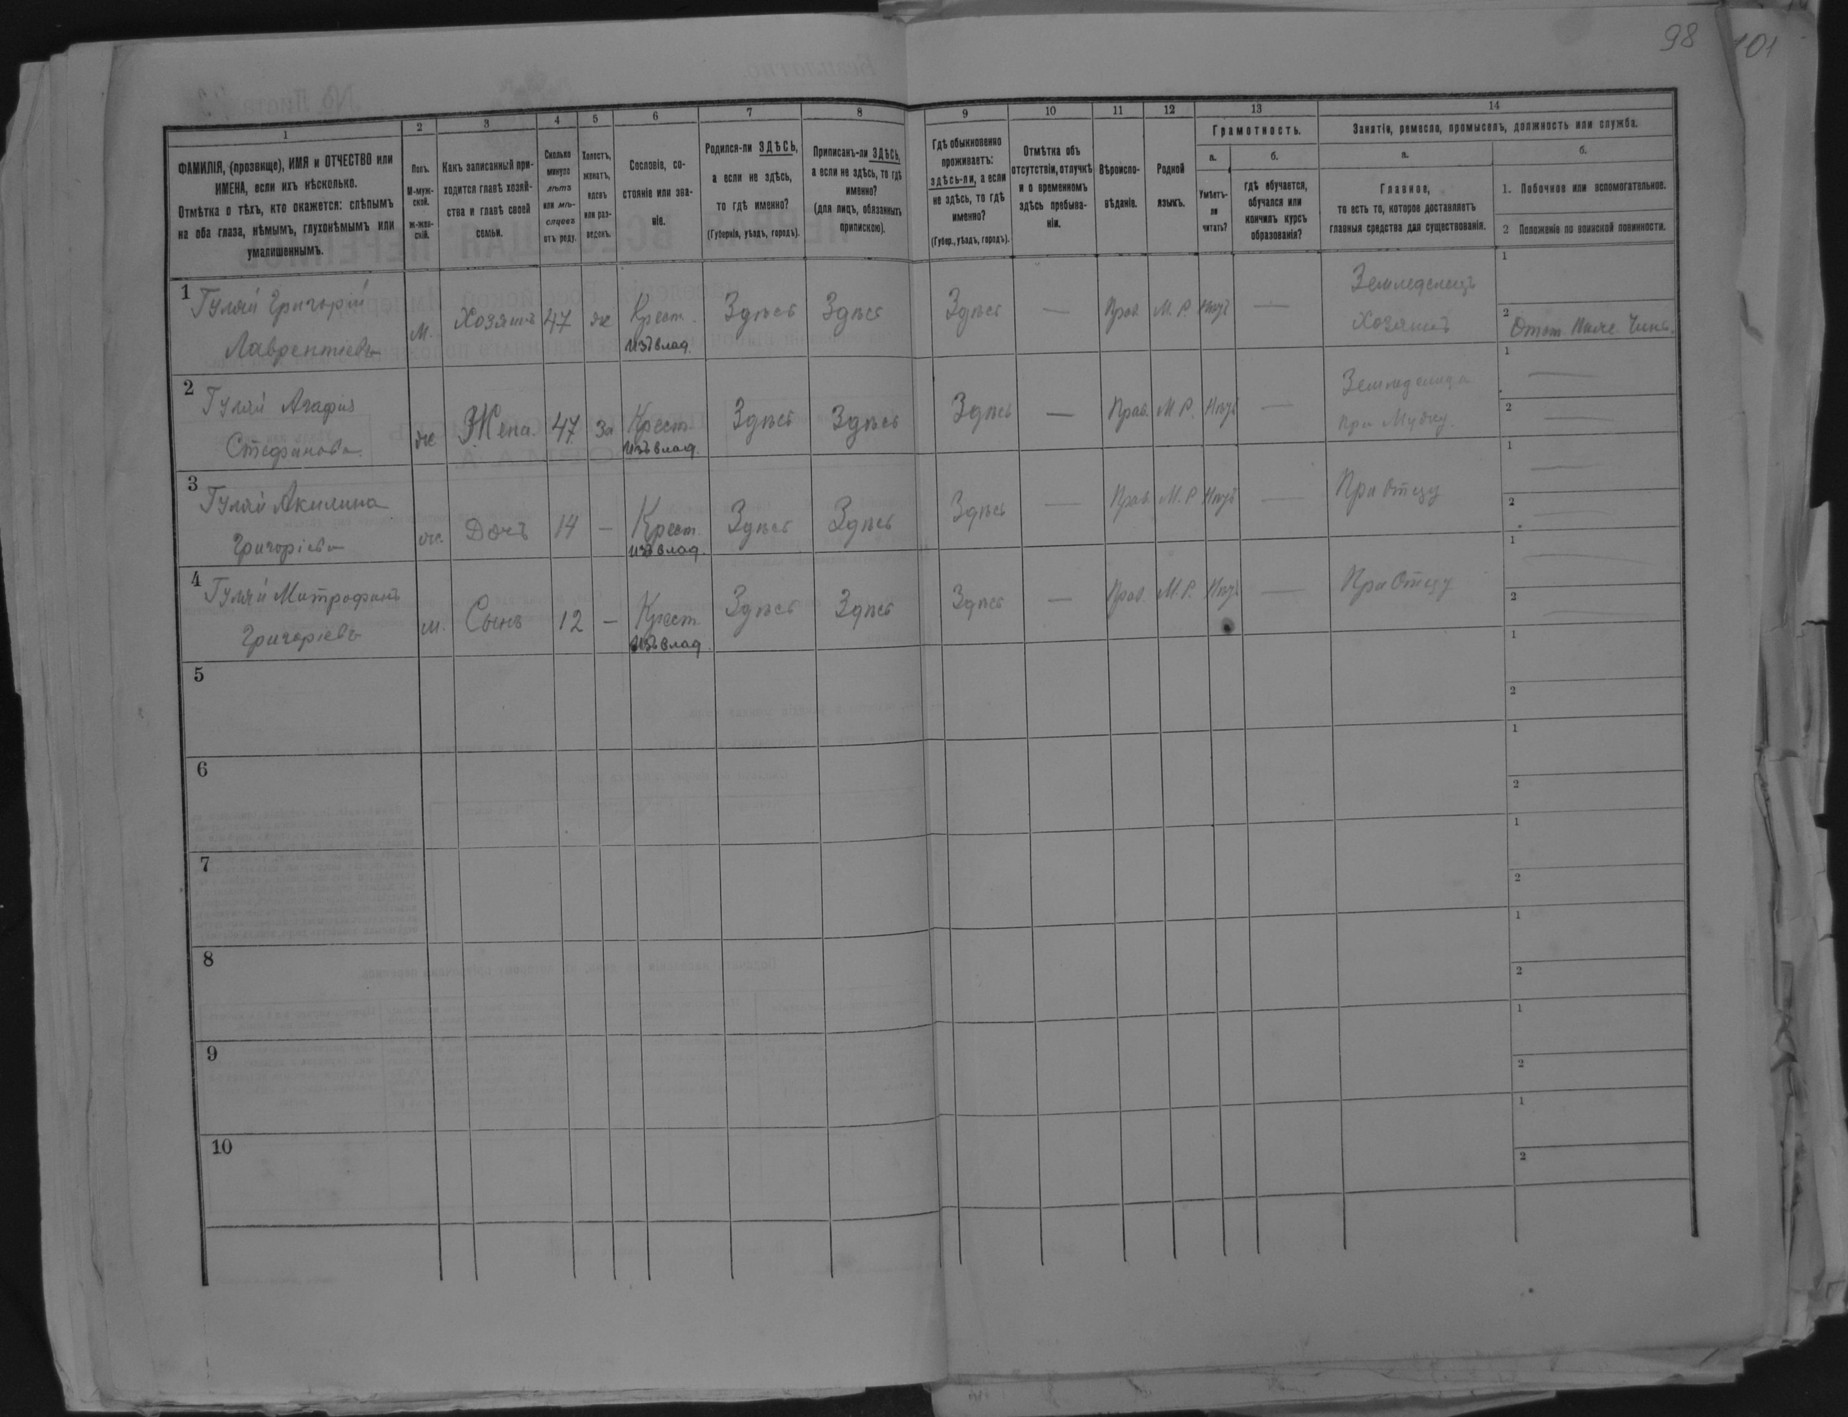 98 101
1 2 3 4 5 6 7 8 9 10 11 12 13 14
ФАМИЛІЯ, (прозвище), ИМЯ и ОТЧЕСТВО или
ИМЕНА, если ихъ нѣсколько.
Отмѣтка о тѣхъ, кто окажется: слѣпымъ
на оба глаза, нѣмымъ, глухонѣмымъ или
умалишеннымъ.
Полъ.
М-муж-
ской.
ж-жен-
скій.
Какъ записанный при-
ходится главѣ хозяй-
ства и главѣ своей
семьи.
Сколько
минуло
лѣтъ
или мѣ-
сяцевъ
отъ роду.
Холостъ,
женатъ,
вдовъ
или раз-
веденъ.
Сословіе, со-
стояніе или зва-
ніе.
Родился-ли ЗДѢСЬ,
а если не здѣсь,
то гдѣ именно?
(Губернія, уѣздъ, городъ).
Приписанъ-ли ЗДѢСЬ,
а если не здѣсь, то гдѣ
именно?
(для лицъ, обязанныхъ
припискою).
Гдѣ обыкновенно
проживаетъ:
здѣсь-ли, а если
не здѣсь, то гдѣ
именно?
(Губер., уѣздъ, городъ).
Отмѣтка объ
отсутствіи, отлучкѣ
и о временномъ
здѣсь пребыва-
ніи.
Вѣроиспо-
вѣданіе.
Родной
языкъ.
Грамотность.
а.
Умѣетъ-
ли
читать?
б.
гдѣ обучается,
обучался или
кончилъ курсъ
образованія?
Занятіе, ремесло, промыселъ, должность или служба.
а.
Главное,
то есть то, которое доставляетъ
главныя средства для существованія.
б.
1. Побочное или вспомогательное.
2 Положеніе по воинской повинности.
1 Гуляй Григорій
Лаврентіевъ
М. Хозяинъ 47 же Крест.
изъ влад.
Здѣсь Здѣсь Здѣсь — Прав. М. Р. Нѣтъ —
Земледелецъ
Хозяинъ
1
2
2 Гуляй Агафія
Стефанова
же Жена. 47 За Крест.
изъ влад.
Здѣсь Здѣсь Здѣсь — Прав. М. Р. Нѣтъ —
при Мужу.
1 —
2 —
3 Гуляй Акилина
Григоріева
же. Дочь 14 — Крест.
изъ влад.
Здѣсь Здѣсь Здѣсь — Прав М. Р Нѣтъ —
При Отцу
1 —
2 —
4 Гуляй Митрофанъ
Григоріевъ
м. Сынъ 12 — Крест
изъ влад.
Здѣсь Здѣсь Здѣсь — Прав. М. Р. Нѣтъ —
При Отцу
1 —
2 —
5
1
2
6
1
2
7
1
2
8
1
2
9
1
2
10
1
2